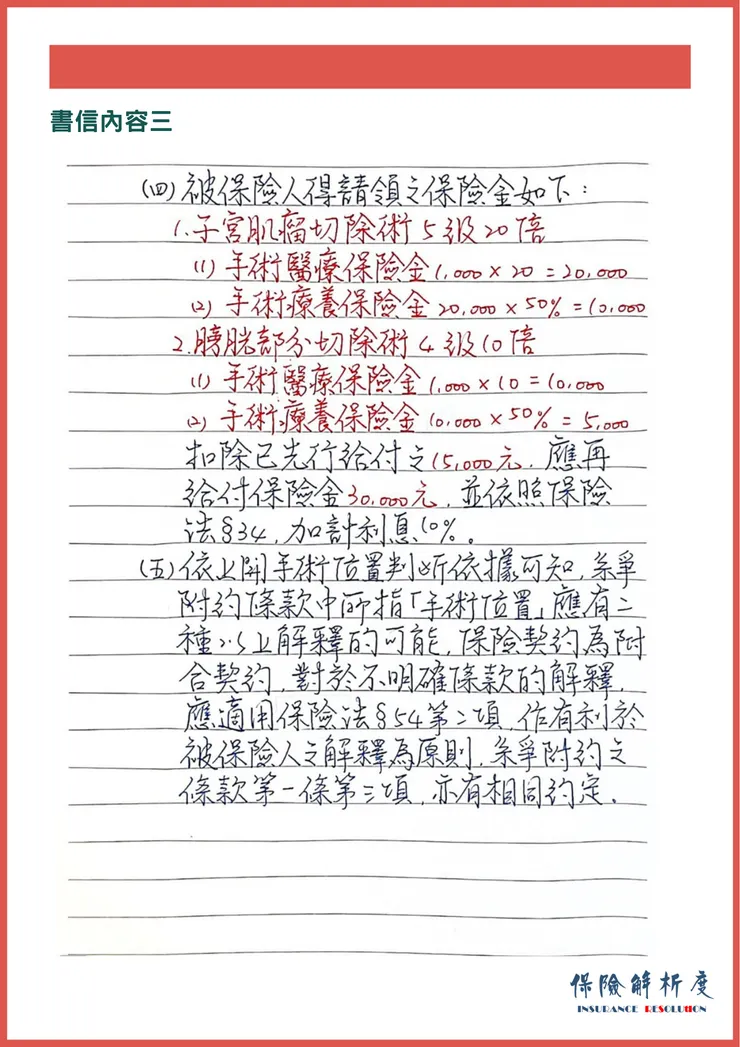 書信內容三
(四)被保險人得請領之保險金如下：
1.子宮肌瘤切除術5級20倍
(1)手術醫療保險金1,000×20=20,000
(2)手術療養保險金20,000×50%=10,000
2.膀胱部分切除術4級10倍
(1)手術醫療保險金1,000×10=10,000
(2)手術療養保險金10,000×50%=5,000
扣除已先行給付之15,000元，應再
給付保險金30,000元，並依照保險
法§34，加計利息10%。
(五)依上開手術位置判斷依據可知，系爭
附約條款中所指「手術位置」應有二
種以上解釋的可能，保險契約為附
合契約，對於不明確條款的解釋，
應適用保險法§54第二項，作有利於
被保險人之解釋為原則，系爭附約之
條款第一條第三項，亦有相同約定。
保險解析度
INSURANCE RESOLUTION